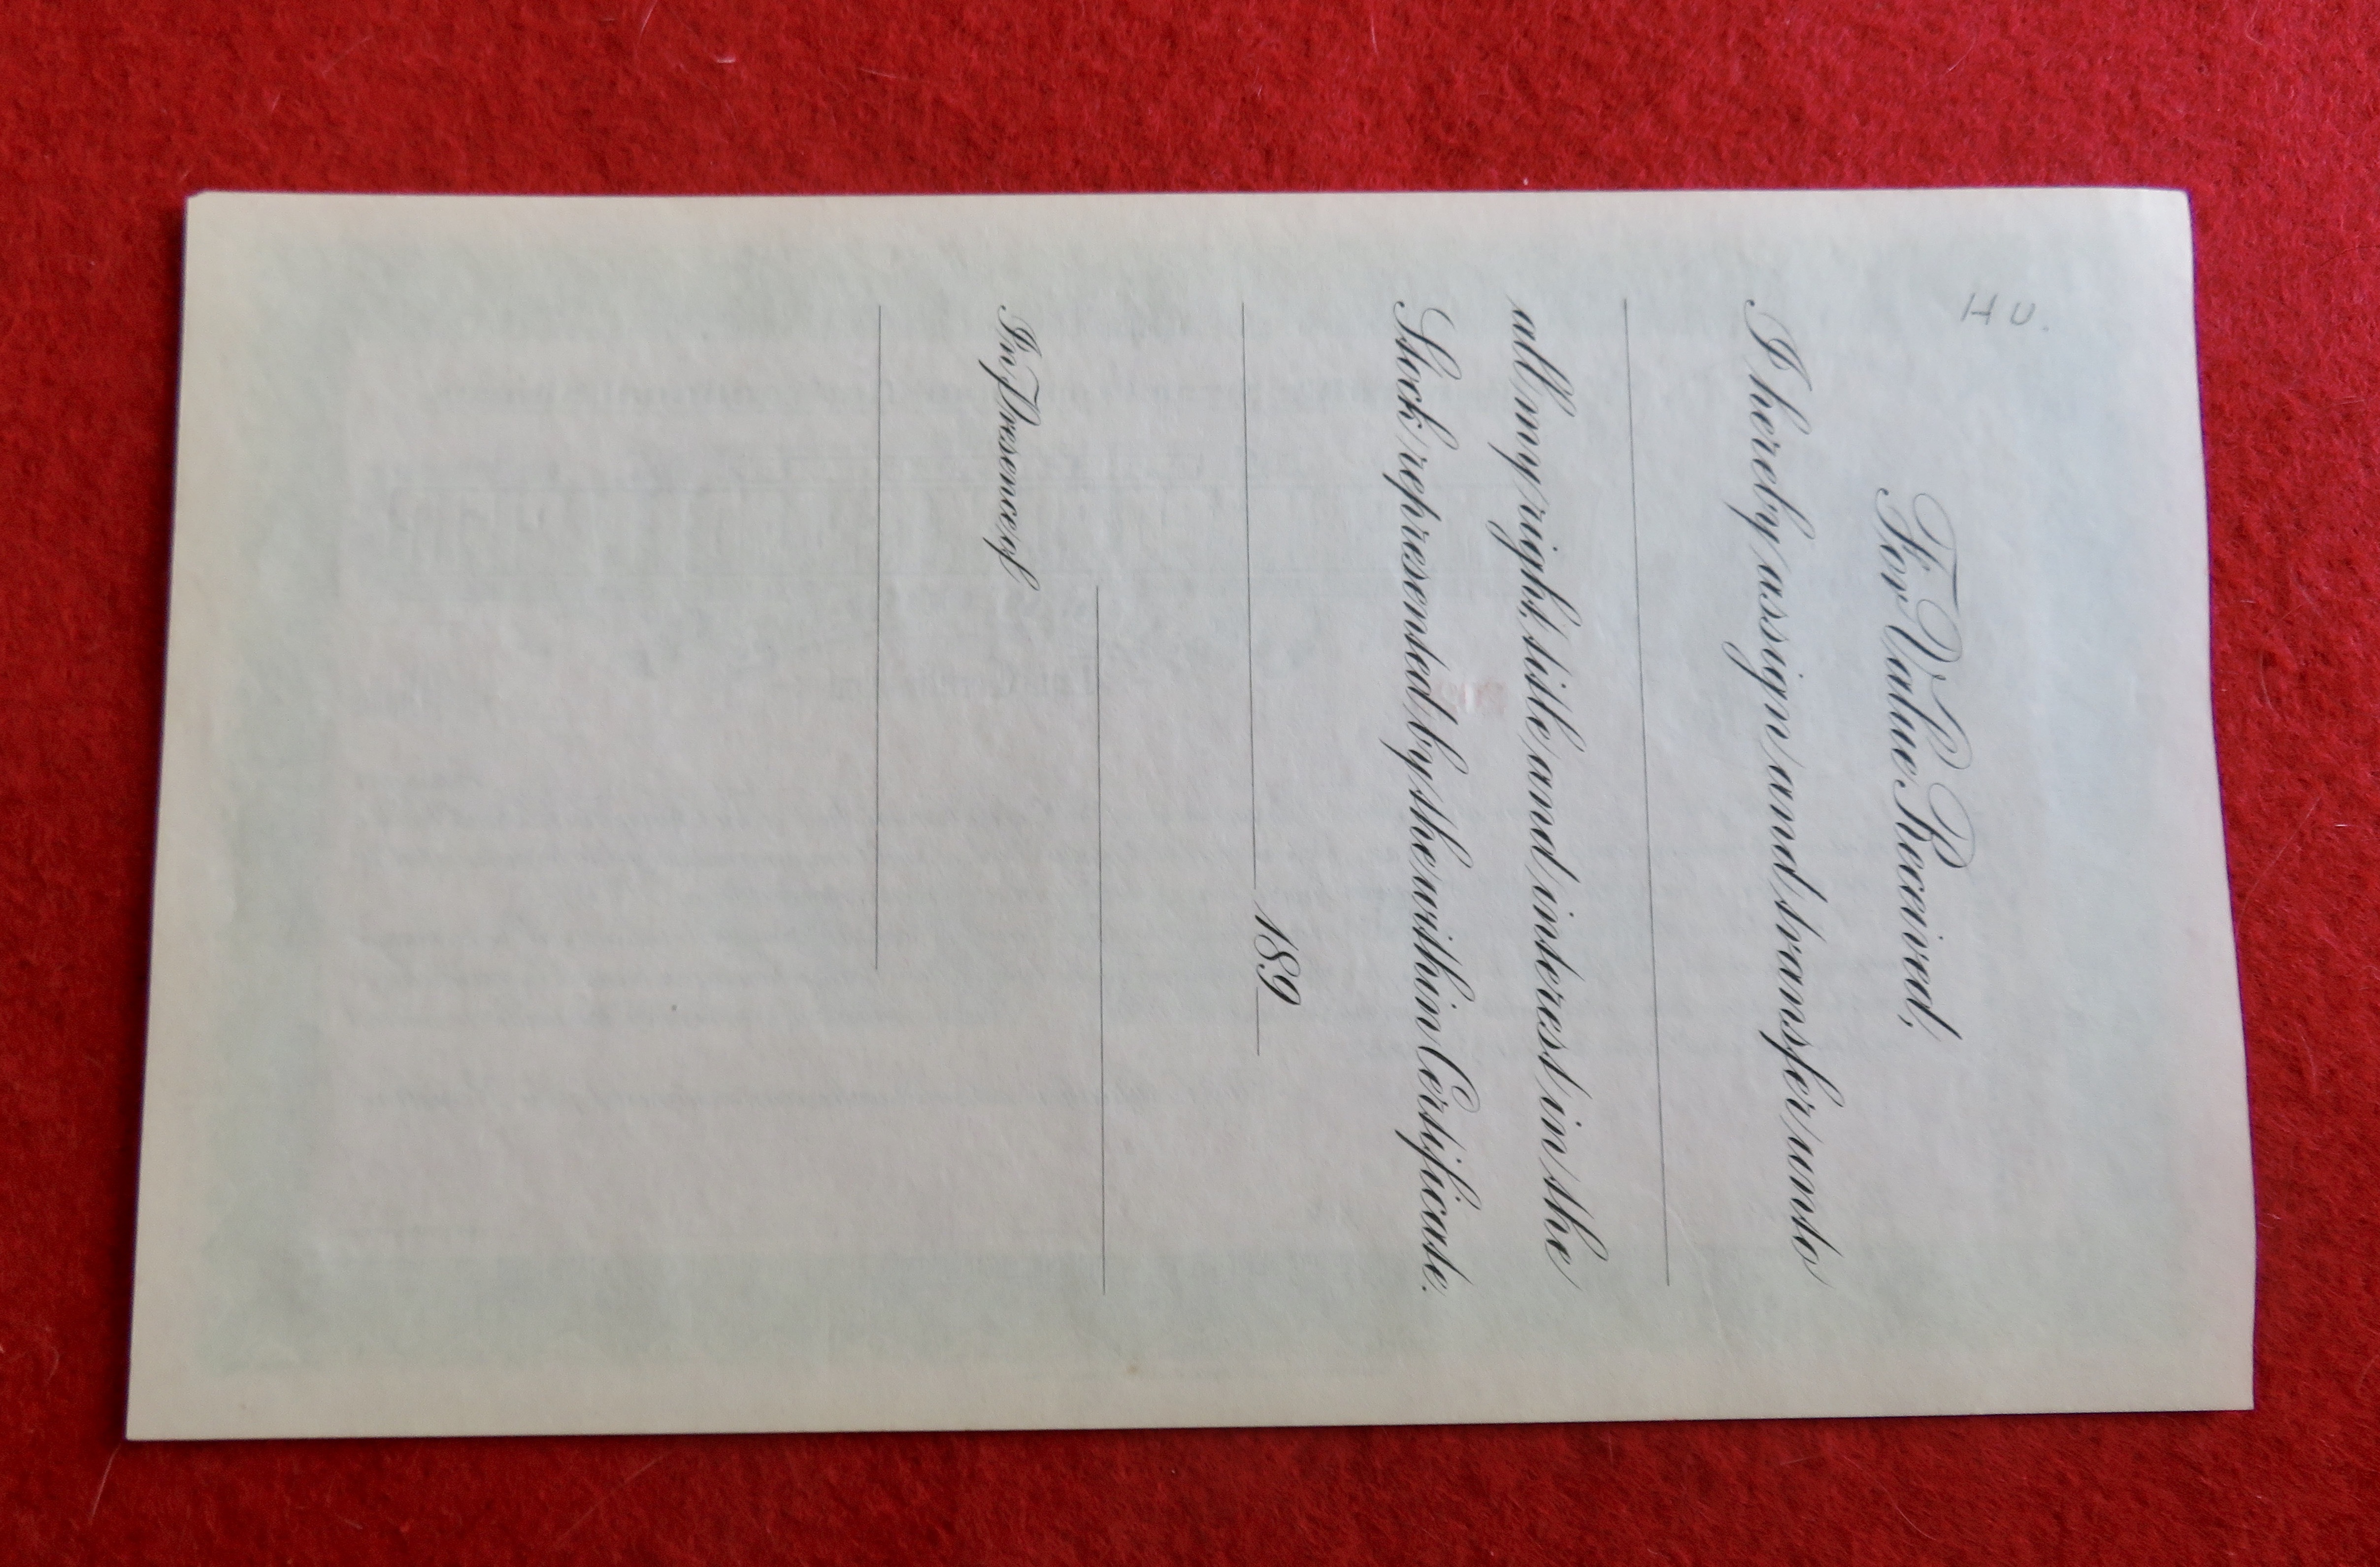 H U.
For Value Received,
I hereby assign and transfer unto
all my right title and interest in the
Stock represented by the within Certificate.
189
In Presence of